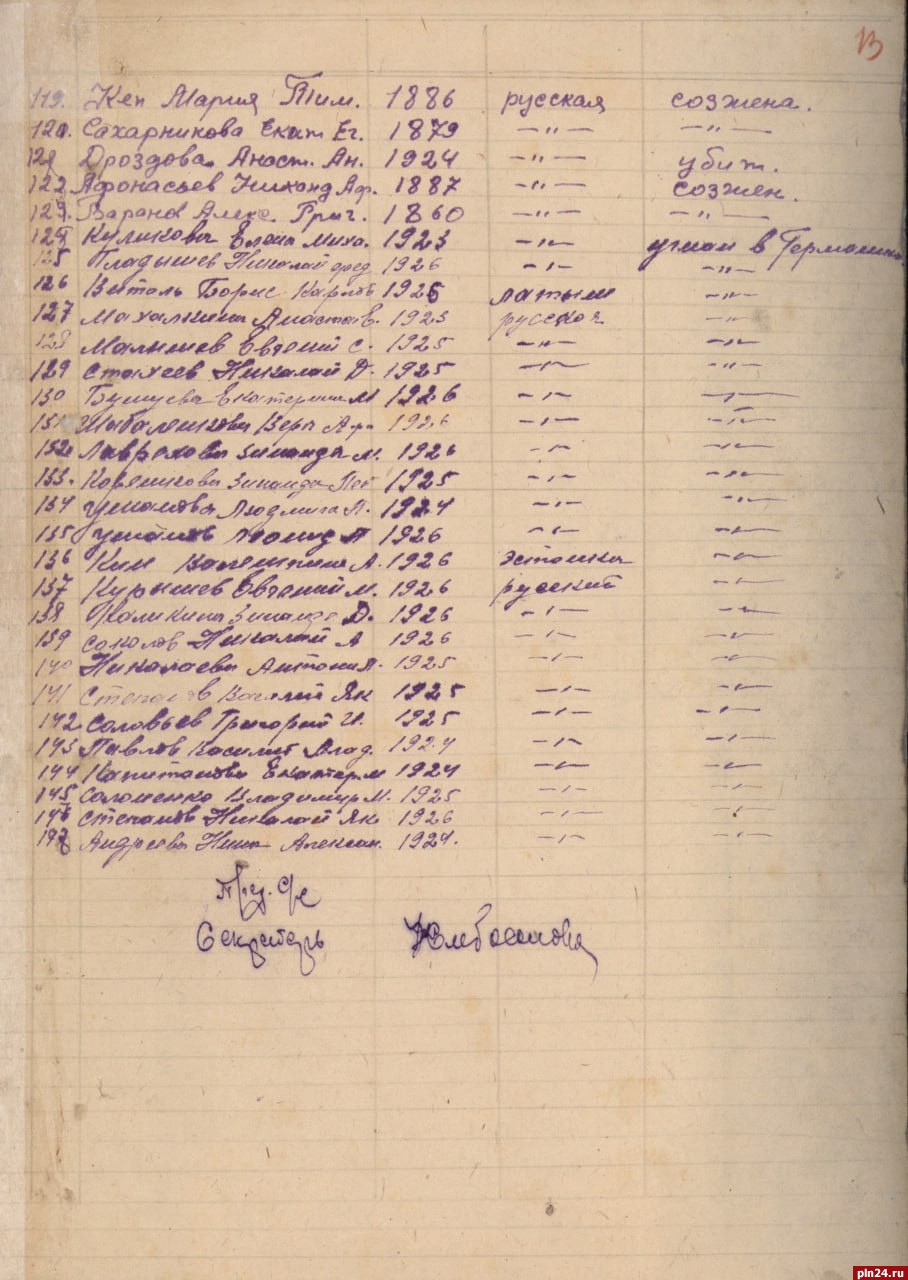 13
119. Кеп Мария Тим. 1886 русская созжена.
120. Сахарникова Екат Ег. 1879 —"— —"—
121 Дроздова Анаст. Ан. 1924 —"— убит.
122. Афонасьев Никанд Аф. 1887 —"— созжен.
123. Баранов Алекс. Григ. 1860 —"— —"—
124 Куликова Елена Миха. 1923 —"— угнан в Германию
125 Гладышев Николай фед 1926 —"— —"—
126 Витоль Борис Карлов 1926 латыш —"—
127 Махалкина Анаста В. 1923 русская —"—
128 Малышев Евгений С. 1925 —"— —"—
129 Стахеев Николай Д. 1925 —"— —"—
130 Екатерина М 1926 —"— —"—
131 Вера 1926 —"— —"—
132 Зинаида М. 1926 —"— —"—
133. Зинаида 1925 —"— —"—
134 Людмила П. 1924 —"— —"—
135 Леонид П 1926 —"— —"—
136 Ким Валентина А. 1926 эстонка —"—
137 Курышев Евгений М. 1926 русский —"—
138 Каликина Зинаида Д. 1926 —"— —"—
139 Соколов Николай А 1926 —"— —"—
140 Николаева Антони Я. 1925 —"— —"—
141 Степанов Василий Як 1925 —"— —"—
142 Соловьев Григорий И. 1925 —"— —"—
143 Павлов Василий Влад. 1924 —"— —"—
144 Капитанова Екатер М 1924 —"— —"—
145 Соломенко Владимир М. 1925 —"— —"—
146 Степанов Николай Як 1926 —"— —"—
147 Андреева Нина Алексан. 1924. —"— —"—
Секретарь
pln24.ru